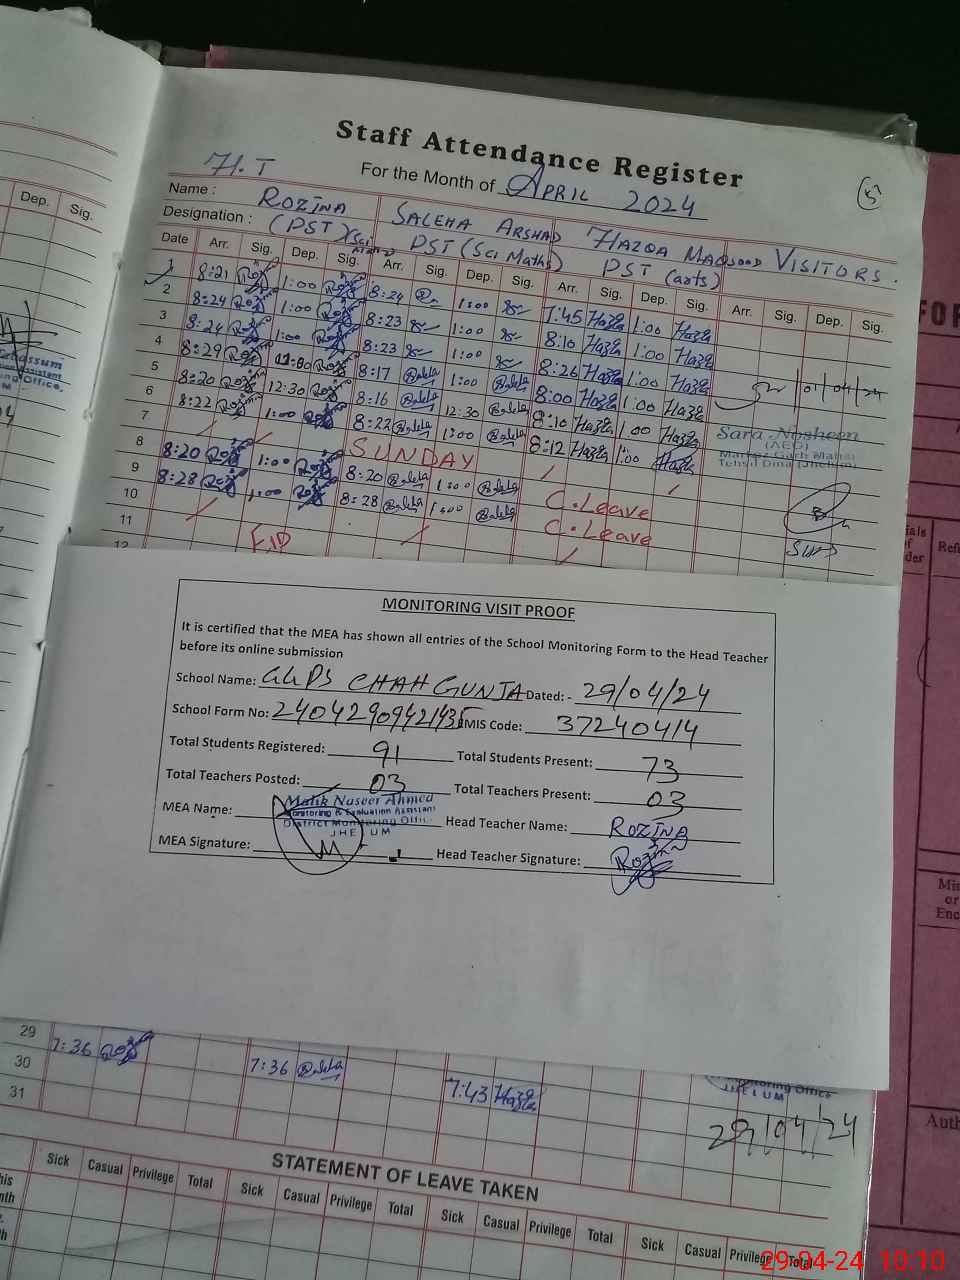 Staff Attendance Register
For the Month of APRIL 2024
5
H.T
Name : ROZINA SALEHA ARSHAD HAZQA MAQSOOD VISITORS.
Designation : (PST) (Sci Maths) PST (Sci Maths) PST (arts)
Dep. Sig.
Date Arr. Sig. Dep. Sig. Arr. Sig. Dep. Sig. Arr. Sig. Dep. Sig. Arr. Sig. Dep. Sig.
1 8:21 1:00 8:24 1:00 7:45 Hazqa 1:00 Hazqa
2 8:24 1:00 8:23 1:00 8:10 Hazqa 1:00 Hazqa
3 8:24 1:00 8:23 1:00 8:26 Hazqa 1:00 Hazqa
4 8:29 8:17 Saleha 1:00 Saleha 8:00 Hazqa 1:00 Hazqa
01/04/24
5 8:20 12:30 8:16 Saleha 12:30 Saleha 8:10 Hazqa 1:00 Hazqa
6 8:22 1:00 8:22 Saleha 1:00 Saleha 8:12 Hazqa 1:00 Hazqa
Sara Nosheen
(AEO)
Markaz Garh Mahal
Tehsil Dina (Jhelum)
7 SUNDAY
8 8:20 1:00 8:20 Saleha 1:00 Saleha C.Leave
9 8:28 1:00 8:28 Saleha 1:00 Saleha C.Leave
10 EID
11
12
MONITORING VISIT PROOF
It is certified that the MEA has shown all entries of the School Monitoring Form to the Head Teacher
before its online submission
School Name: GGPS CHAH GUNJA Dated: - 29/04/24
School Form No: 24042909421435 EMIS Code: 37240414
Total Students Registered: 91 Total Students Present: 73
Total Teachers Posted: 03 Total Teachers Present: 03
MEA Name: Malik Naseer Ahmed
Monitoring & Evaluation Assistant
District Monitoring Office
JHELUM
Head Teacher Name: ROZINA
MEA Signature: Head Teacher Signature: Rozina
29 7:36 Rozina 7:36 Saleha 7:43 Hazqa
30
31
Monitoring Office
JHELUM
29/04/24
STATEMENT OF LEAVE TAKEN
Sick Casual Privilege Total Sick Casual Privilege Total Sick Casual Privilege Total Sick Casual Privilege Total
29-04-24 10:10